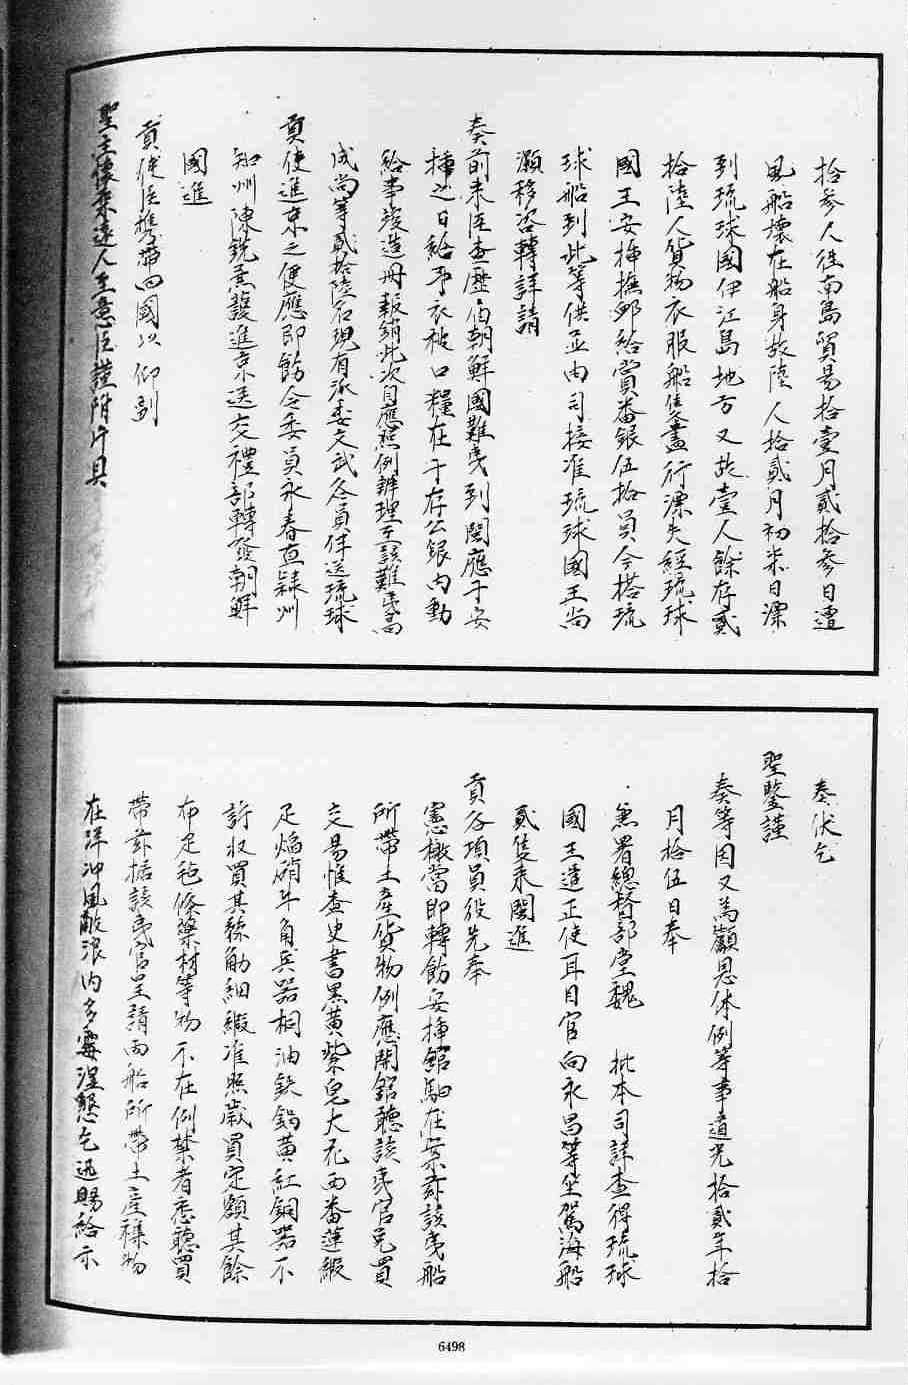 拾參人往南島貿易拾壹月貳拾參日遭
風船壞在船身故陸人拾貳月初柒日漂
到琉球國伊江島地方又故壹人餘存貳
拾陸人貨物衣服船隻盡行漂失經琉球
國王安插撫卹給賞番銀伍拾員令搭琉
球船到此等供並由司接准琉球國王尚
灝移咨轉詳請
奏前來臣查歷伯朝鮮國難夷到閩應于安
插之日給予衣被口糧在于存公銀內動
給事竣造冊報銷此次自應照例辦理至該難民高
成尚等貳拾陸名現有派委文武各員伴送琉球
貢使進京之便應即飭令委員永春直隸州
知州陳銑蕉護進京送交禮部轉發朝鮮
國進
貢使臣攜帶回國以仰副
聖主懷柔遠人至意臣謹附片具
奏伏乞
聖鑒謹
奏等因又為籲恩休例等事道光拾貳年拾
月拾伍日奉
兼署總督部堂魏 批本司詳查得琉球
國王遣正使耳目官向永昌等坐駕海船
貳隻來閩進
貢各項員役先奉
憲檄當即轉飭安插館驲在案茲該夷船
所帶土產貨物例應開館聽該夷官兌買
交易惟查史書黑黃紫皂大花西番蓮緞
疋焰硝牛角兵器桐油鉄鍋黃紅銅器不
許收買其絲觔紬緞准照歲買定額其餘
布疋毡條藥材等物不在例禁者悉聽買
帶茲據該夷官呈請兩船所帶土產雜物
在洋沖風敵浪內多霉濕懇乞迅賜給示
6498